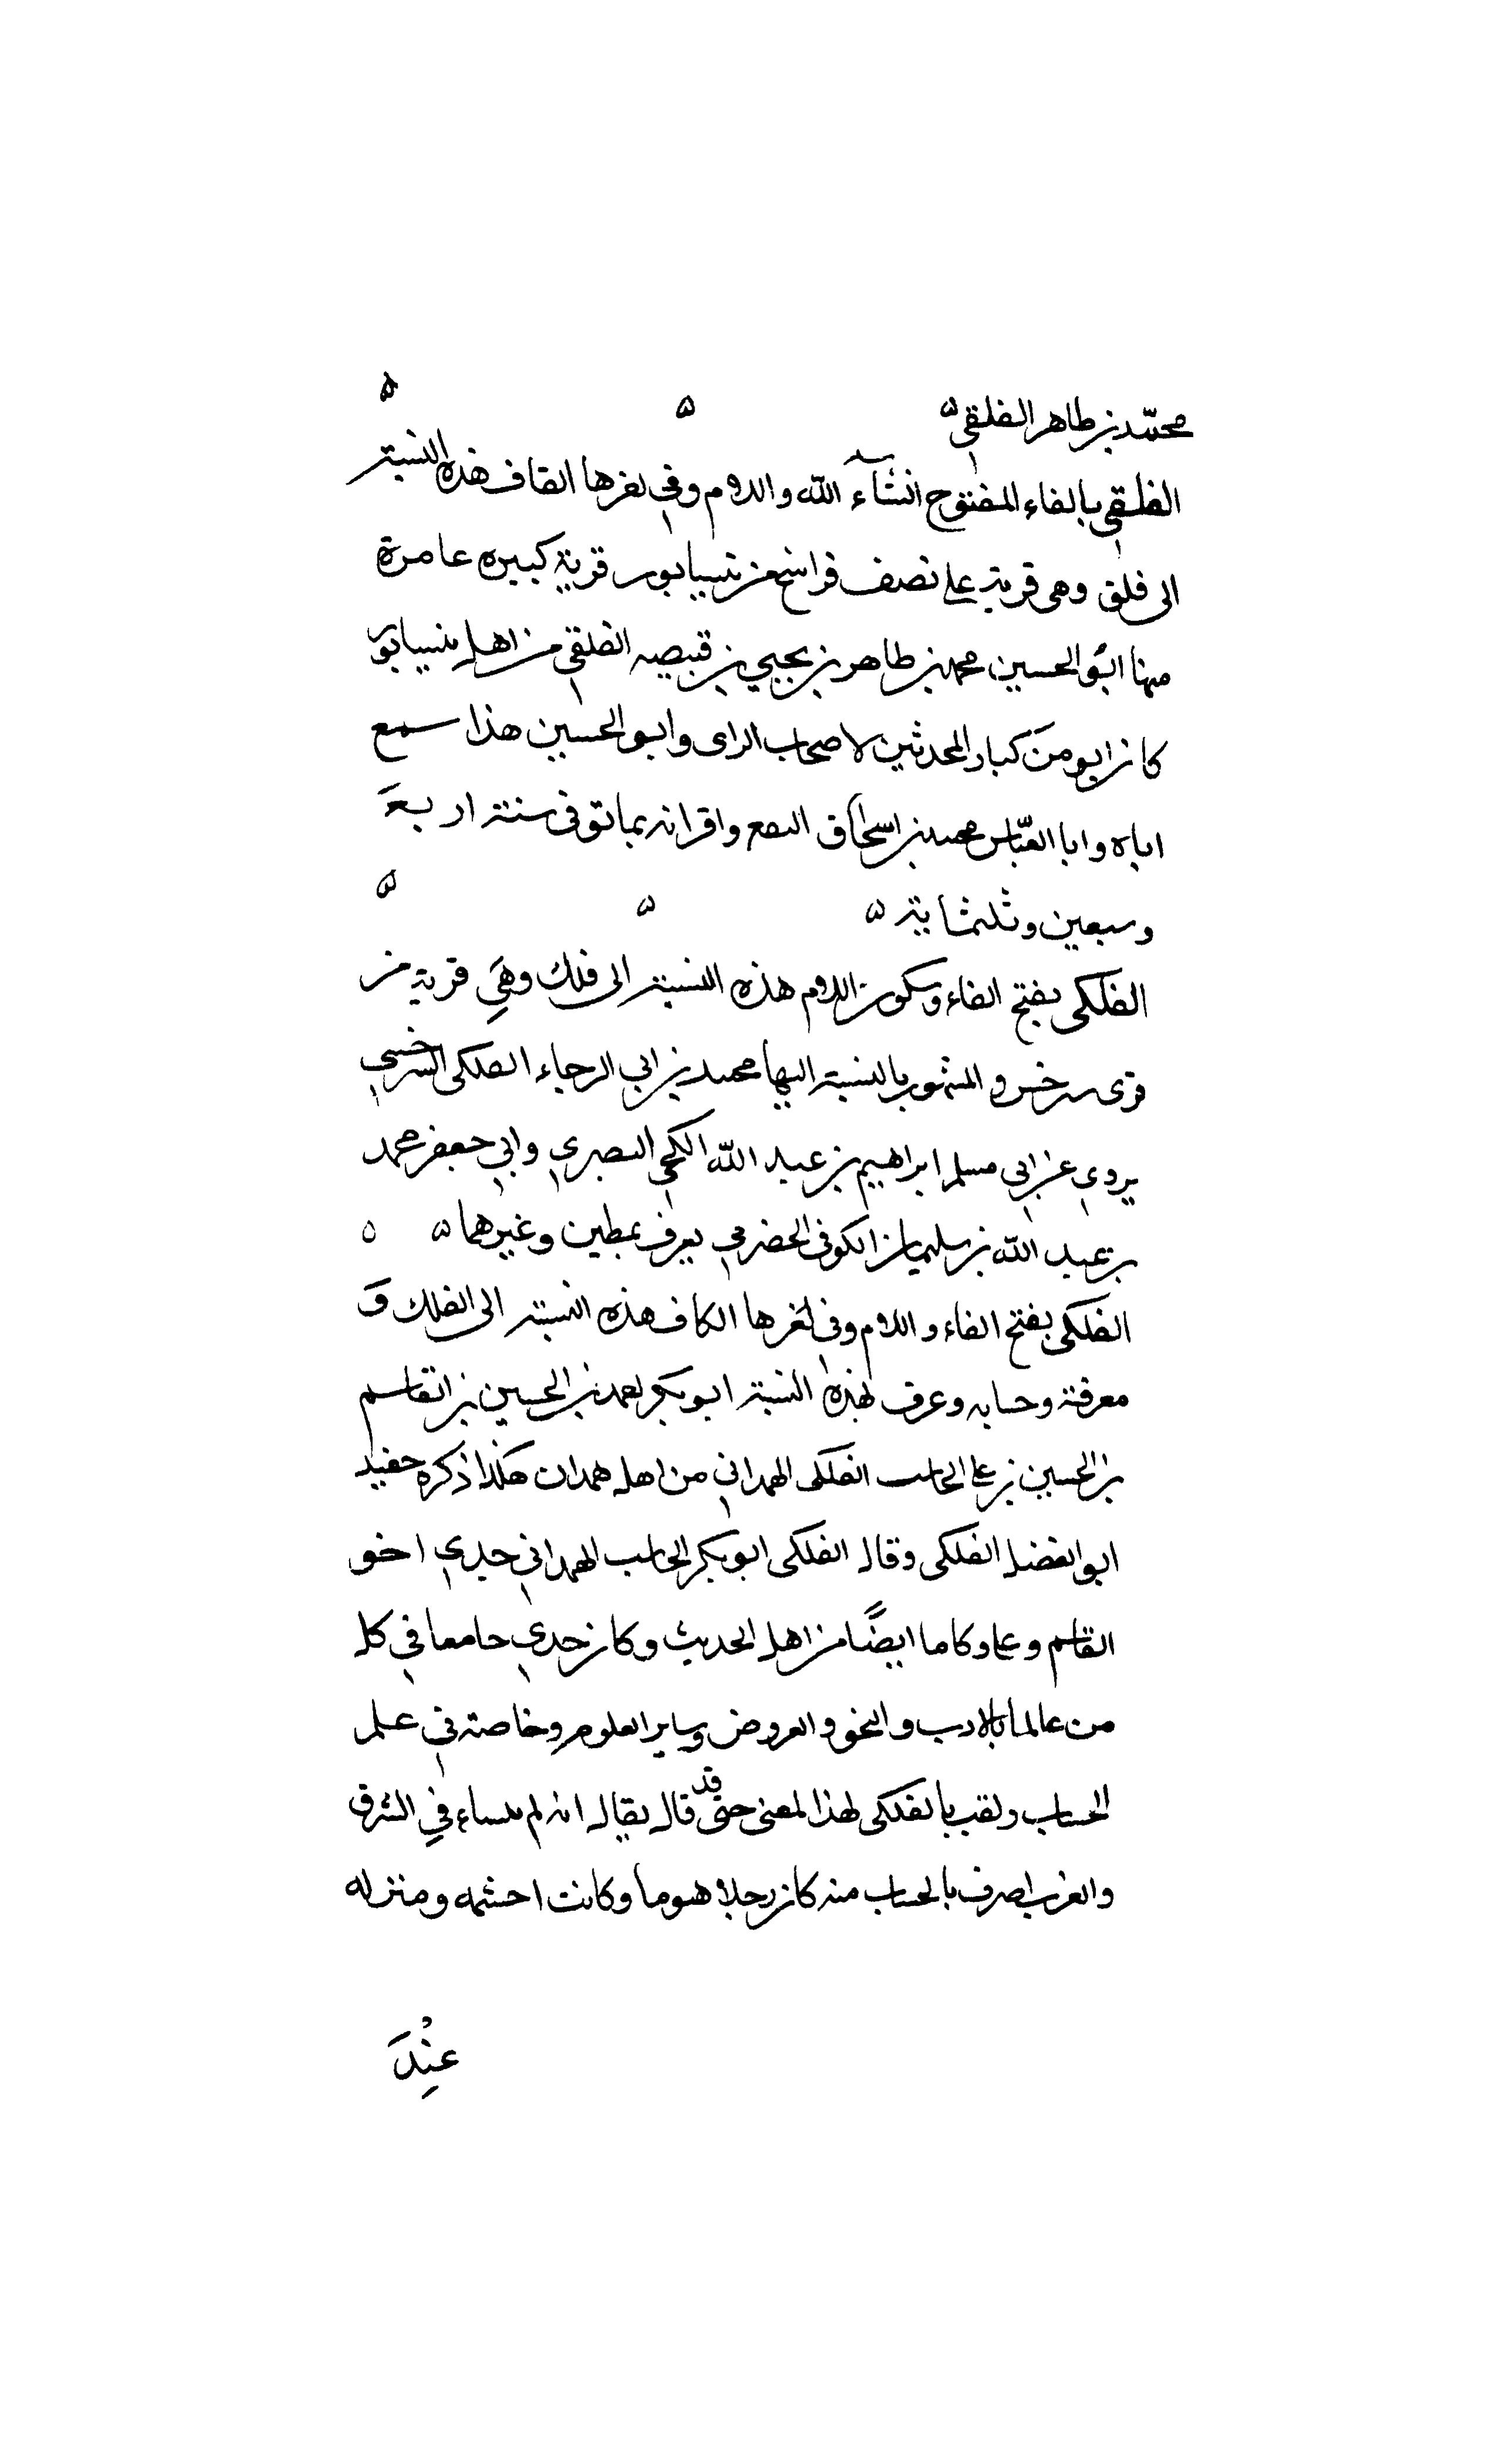 محمد بن طاهر الفلقي ه ه ه
الفلقي بالفاء المفتوح انشآء الله واللام وفي اخرها القاف هذه النسبة
الى فلق وهى قرية على نصف فراسخ من نيسابور قرية كبيره عامرة
منها ابو الحسين محمد بن طاهر بن يحيي بن قبيصه الفلقي من اهل نيسابور
كان ابو من كبار المحدثين لاصحاب الراى وابو الحسين هذا سمع
اباه وابا العباس محمد بن اسحاق واقرانه بما توفى سنة اربعَ
وسبعين وثلثماية ه ه ه
الفلكى بفتح الفاء وسكون اللام هذه النسبة الى فلك وهَي قرية من
قرى سرخس والمشهور بالنسبة اليها محمد بن ابي الرجاء الفلكى السرخسي
يروي عن ابي مسلم ابراهيم بن عبد الله الكجي البصري وابي جعفر محمد
بن عبد الله بن سليمان الكوفى الحضرمي يعرف بمطين وغيرهما ه ه
الفلكى بفتح الفاء واللام وفي اخرها الكاف هذه النسبة الى الفلك وَ
معرفته وحسابه وعرف بهذه النسبة ابو بكر احمد بن الحسين بن القاسم
بن الحسين بن على الحاسب الفلكى الهمداني من اهل همدان هكذا ذكره حفيد
ابو الفضل الفلكى وقال الفلكى ابو بكر الحاسب الهمداني جدي اخو
القاسم وعلى وكاما ايضًا من اهل الحديث وكان جدي جامعا في كل
من عالما بالادب والنحو والعروض وساير العلوم وخاصة في علم
الحساب ولقب بالفلكى لهذا المعنى حتى قد قال يقال انه لم ينساء في الشرق
والغرب اصرف بالحساب منه كان رجلا هيوما وكانت احشمه ومنزله
عنْدَ